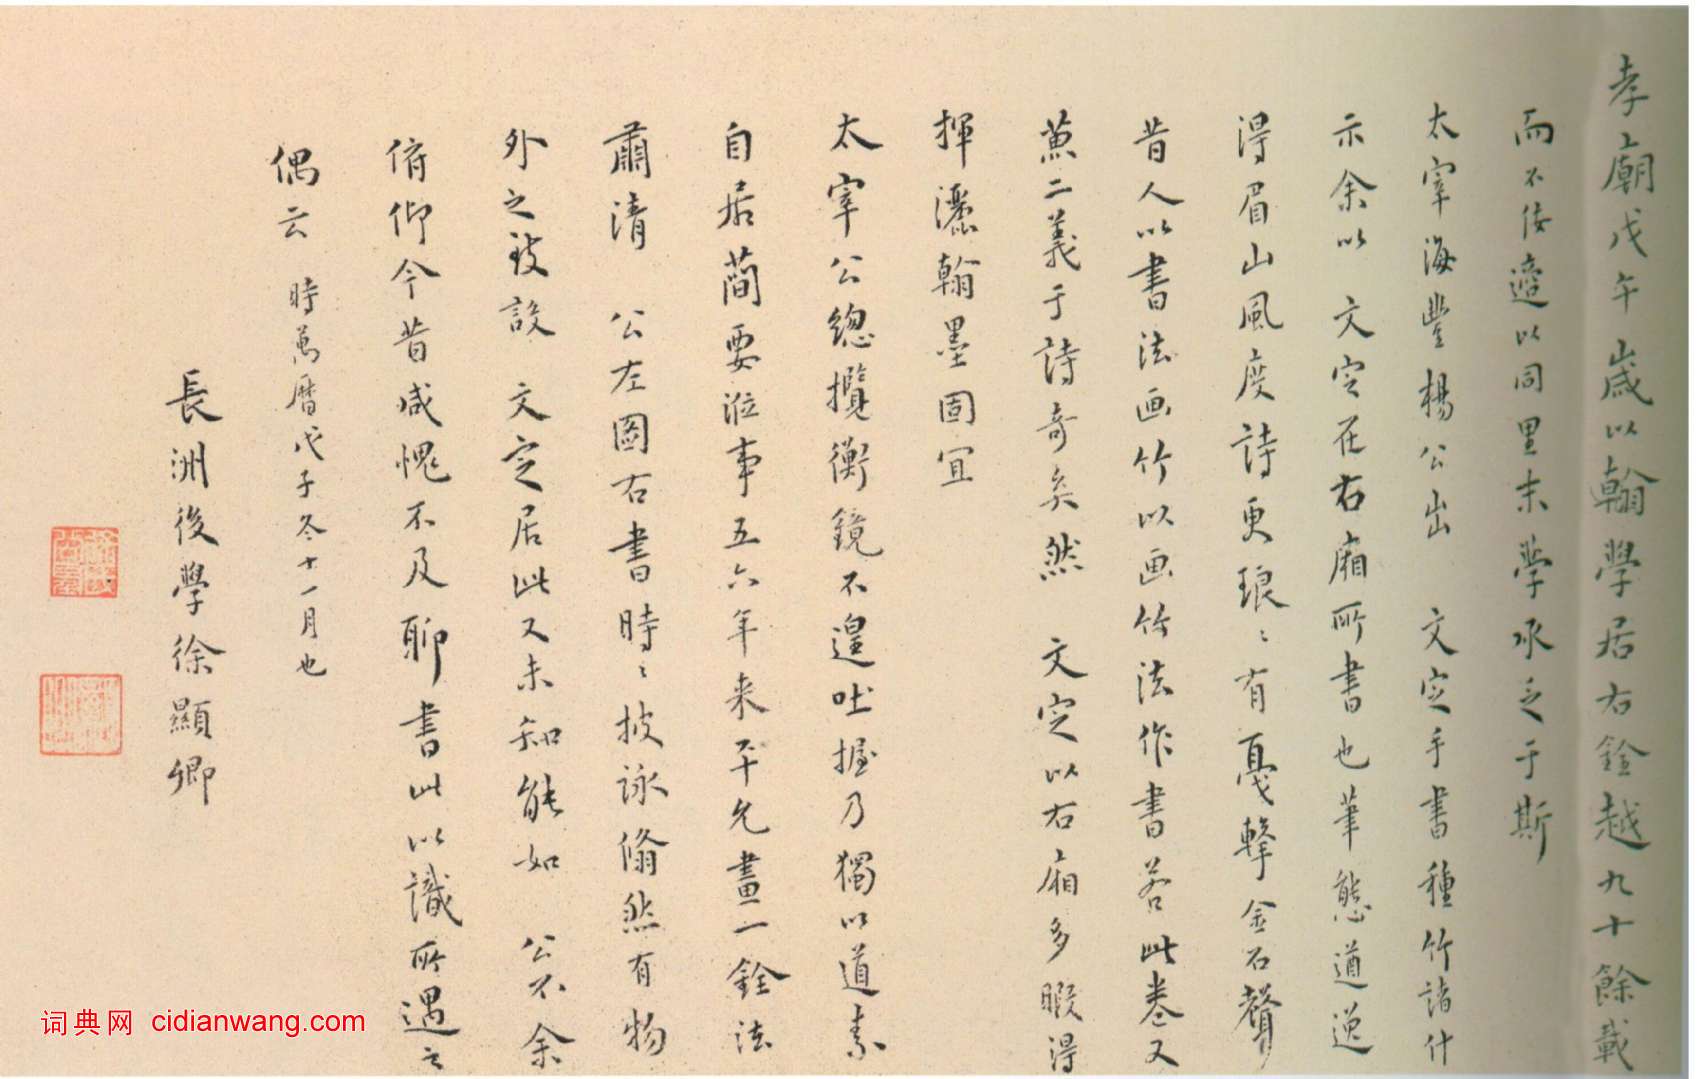 孝廟戊午歲以翰學居右銓越九十餘載
而不佞適以同里末學承乏于斯
太宰海豐楊公出 文定手書種竹諸什
示余以 文定在右廂所書也筆態遒逸
得眉山風度詩更琅〻有戛擊金石聲
昔人以書法画竹以画竹法作書若此卷又
兼二義于詩奇矣然 文定以右廂多暇得
揮灑翰墨固宜
太宰公總攬衡鏡不遑吐握乃獨以道素
自居簡要涖事五六年来平允畫一銓法
肅清 公左圖右書時〻披詠翛然有物
外之致設 文定居此又未知能如 公不余
俯仰今昔感愧不及聊書此以識所遇之
偶云 時萬曆戊子冬十一月也
長洲後學徐顯卿
词典网 cidianwang.com